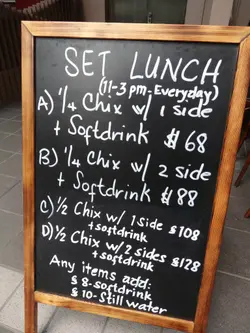 SET LUNCH
(11-3 pm-Everyday)
A) 1/4 Chix w/ 1 side
+ Softdrink $68
B) 1/4 Chix w/ 2 side
+ Softdrink $88
C) 1/2 Chix w/ 1 side $108
+ softdrink
D) 1/2 Chix w/ 2 sides $128
+ softdrink
Any items add:
$8-softdrink
$10-Still water